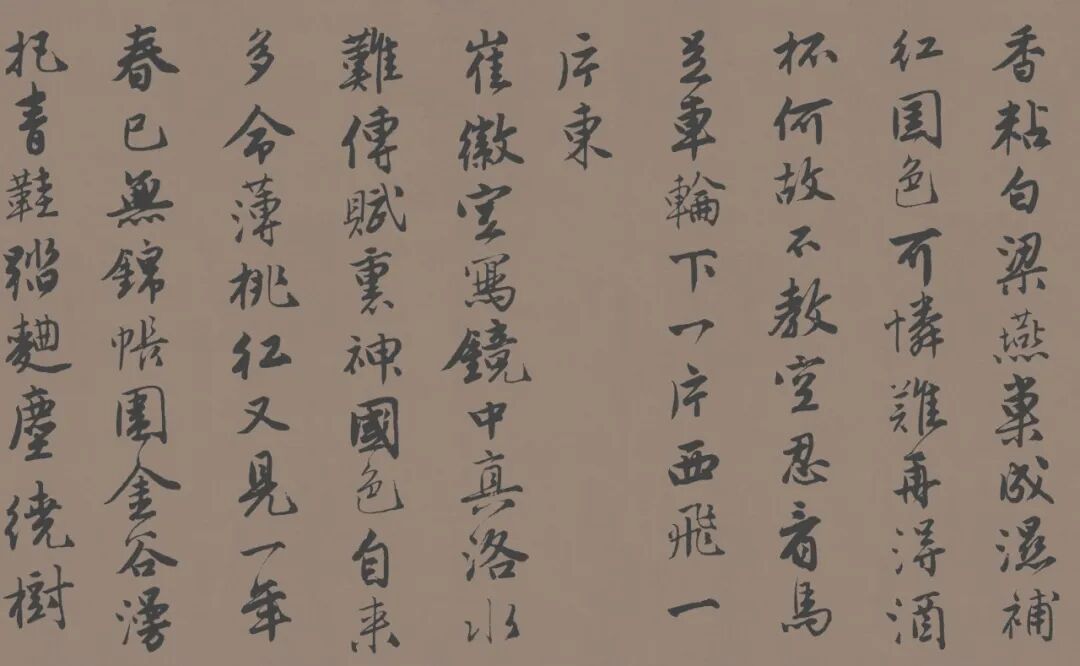 香粘白梁燕巢成濕補
红国色可憐難再得酒
杯何故不教空忍看馬
足車輪下一片西飛一
片東
崔徽空寫鏡中真洛水
難傳賦裏神國色自来
多命薄桃红又見一年
春已無錦帳圍金谷漫
把青鞋踏麯塵繞樹